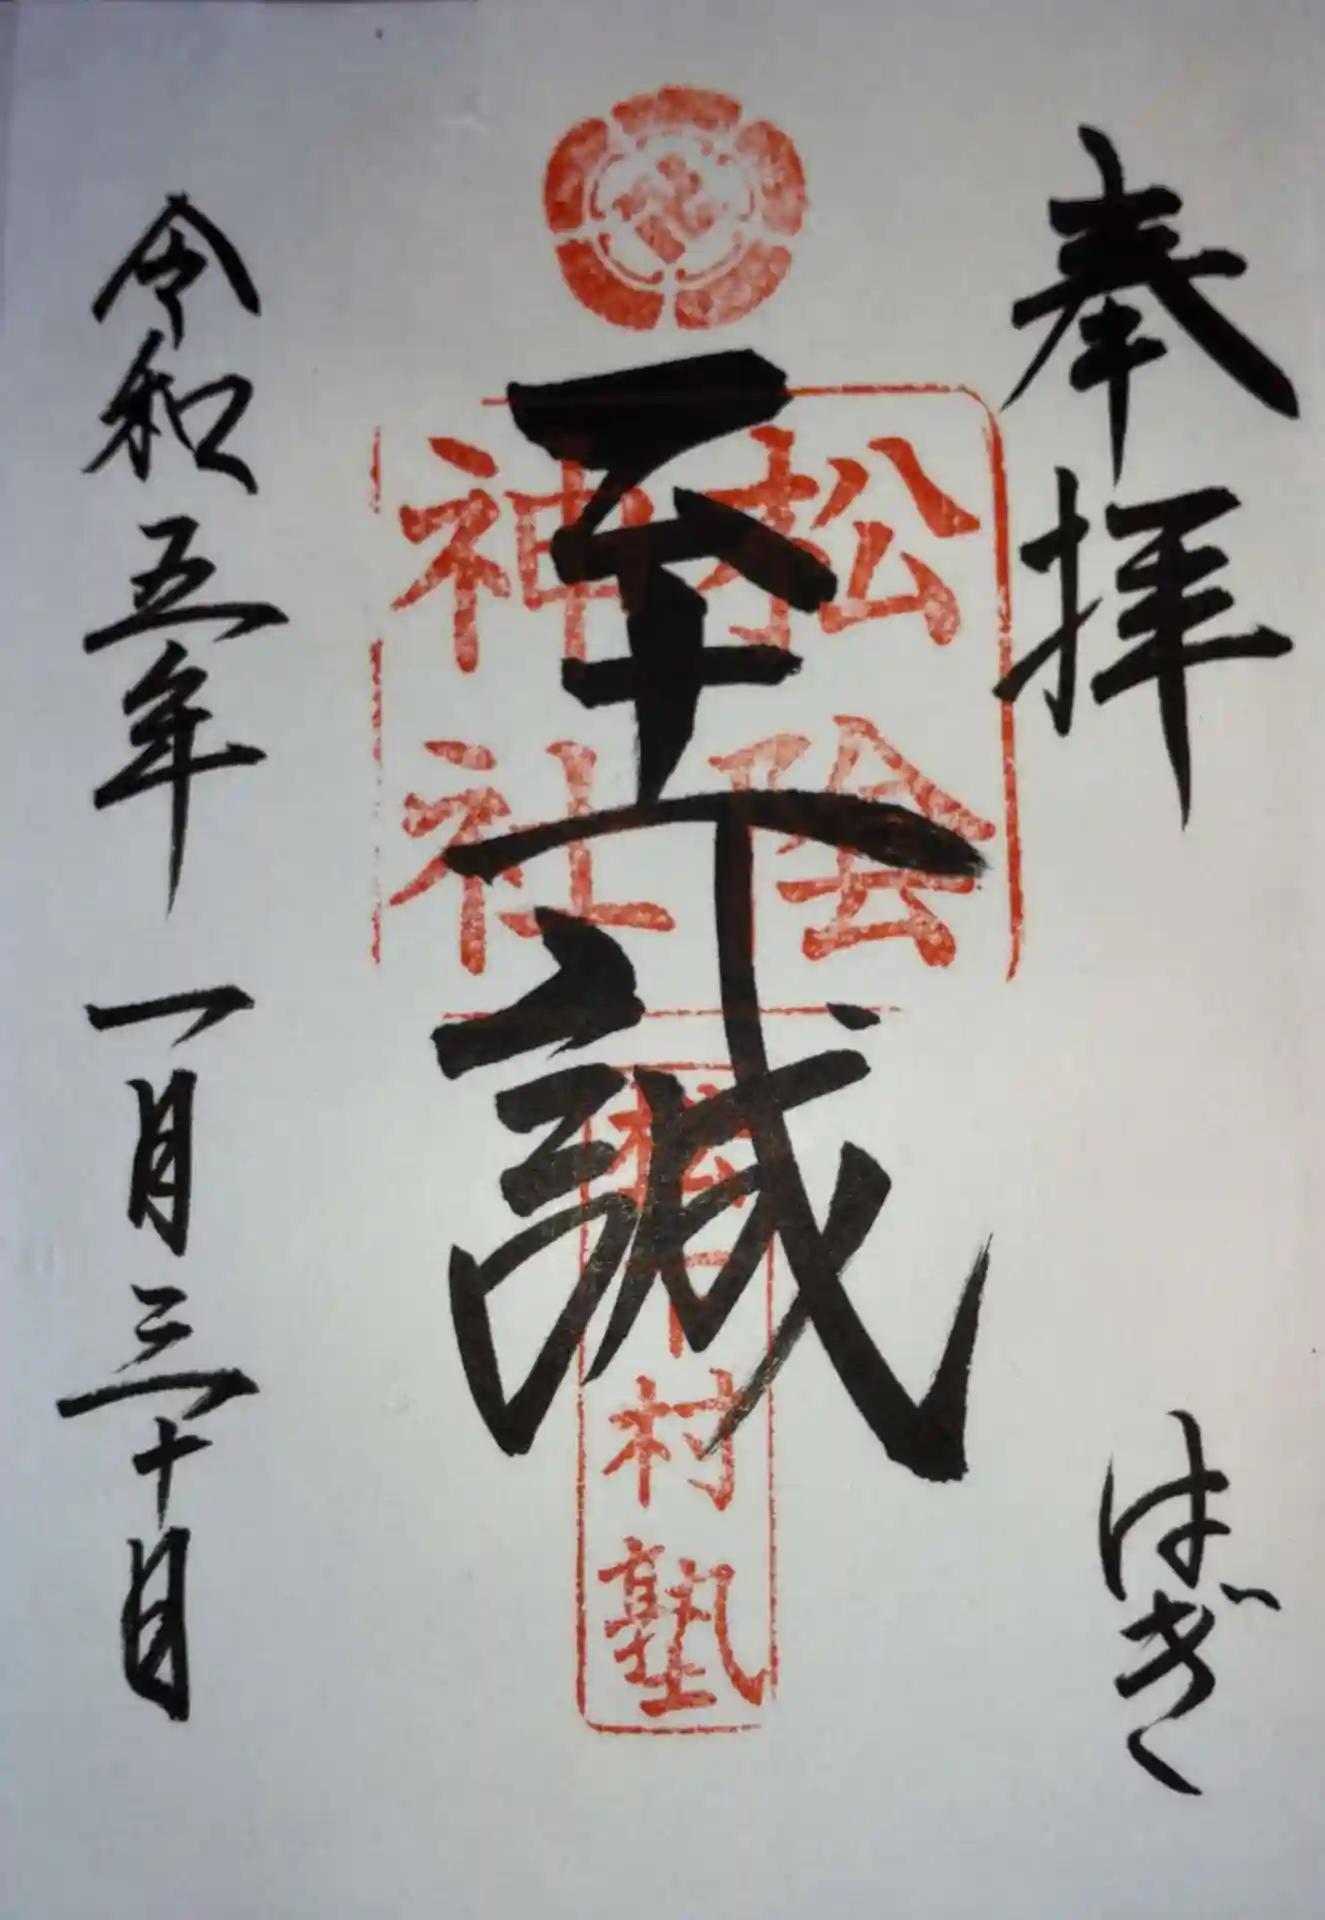 奉拝
はぎ
至誠
松陰
神社
松下村塾
令和五年 一月三十日